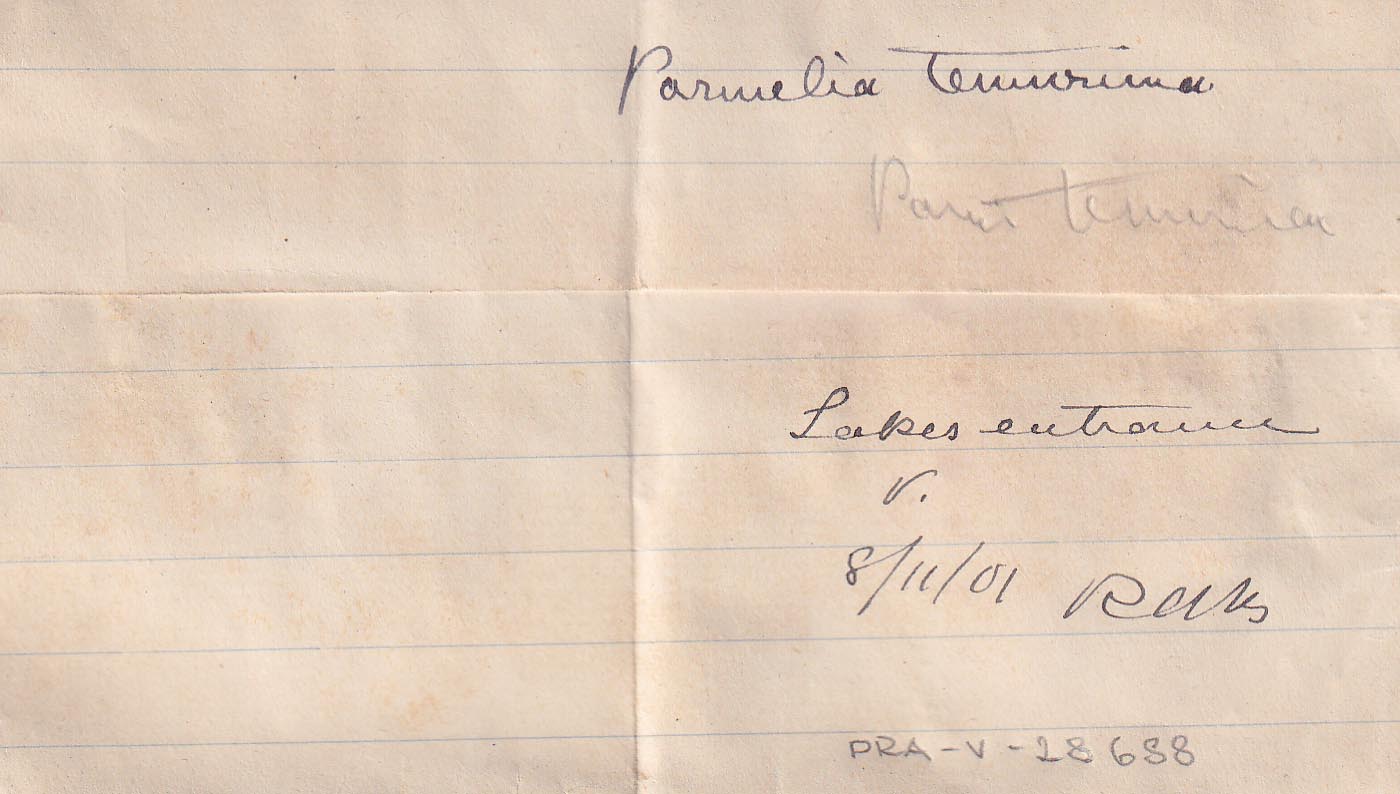 Parmelia tenuirima
Parm tenuirima
Lakes entrance
V.
8/11/01 RAKs
PRA-V-28688